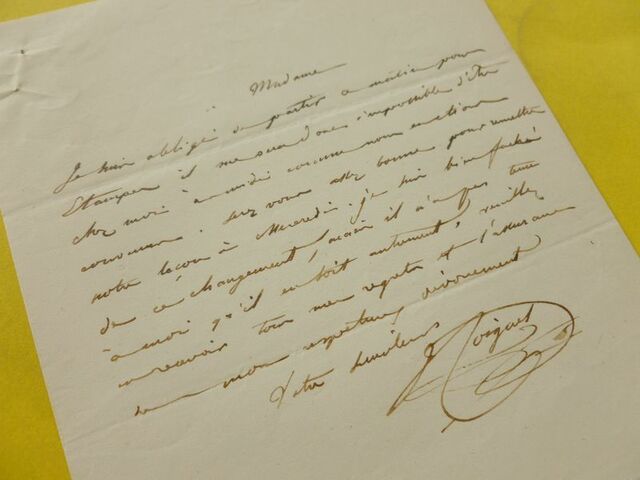 Madame
Je suis obligé de partir ce matin pour
Etampes il me sera donc impossible d'être
chez moi à midi comme nous en étions
convenus. serez vous assez bonne pour remettre
notre leçon à Mercredi. je suis bien fâché
de ce changement, mais il n'a pas tenu
à moi qu'il en soit autrement, veuillez
en recevoir tous mes regrets et l'assurance
de mon respectueux dévouement
Votre serviteur